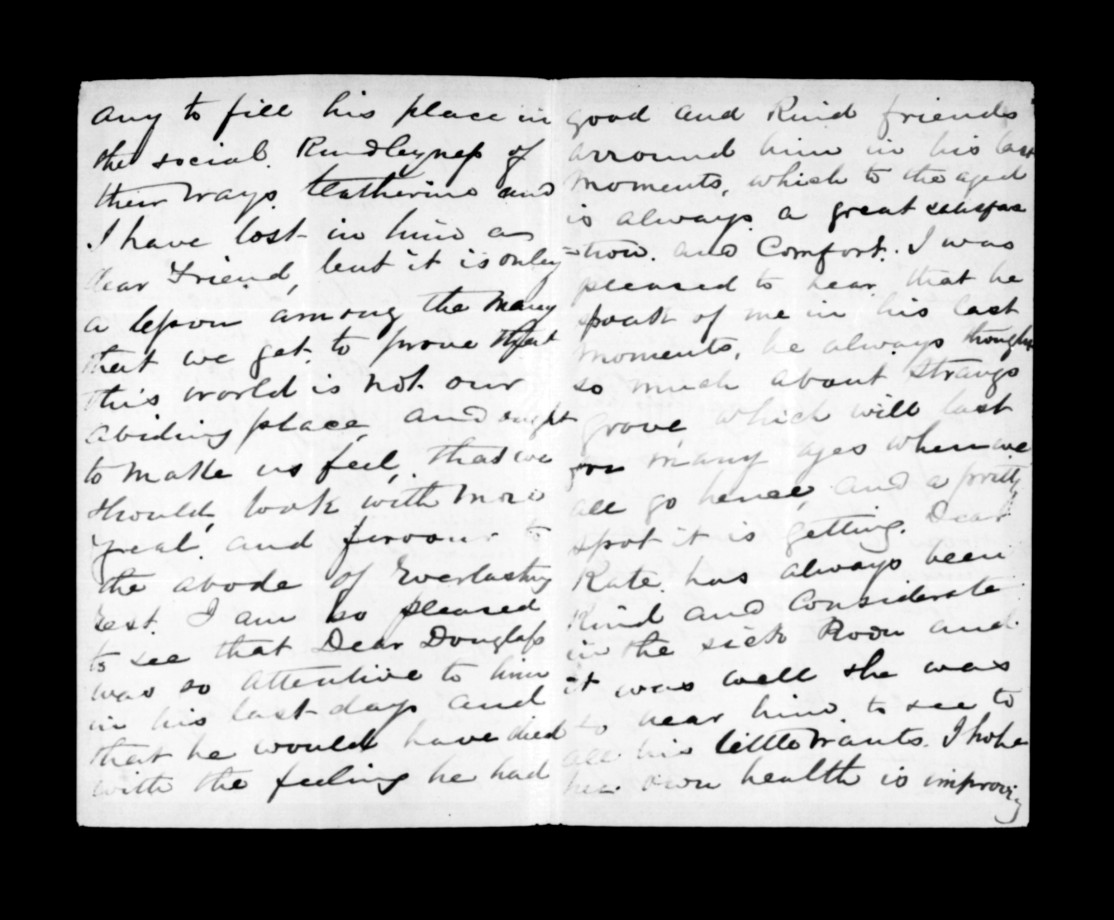 any to fill his place in
the social Kindleyness of
their ways. Catherine and
I have lost in him a
dear Friend, but it is only
a lesson among the many
that we get to prove that
this world is not our
abiding place, and ought
to make us feel, that we
should, look with more
zeal and fervour to
the abode of Everlasting
rest. I am so pleased
to see that Dear Douglass
was so attentive to him
in his last days and
that he would have died
with the feeling he had
good and Kind friends
arround him in his last
moments, which to the aged
is always a great satisfac
=tion. and Comfort. I was
pleased to hear that he
spoak of me in his last
moments, he always thought
so much about Strangs
grove, which will last
for many ages when we
all go hence, and a pretty
spot it is getting. Dear
Kate has always been
Kind and Considerate
in the sick Room and
it was well she was
to near him to see to
all his little wants. I hope
her own health is improving